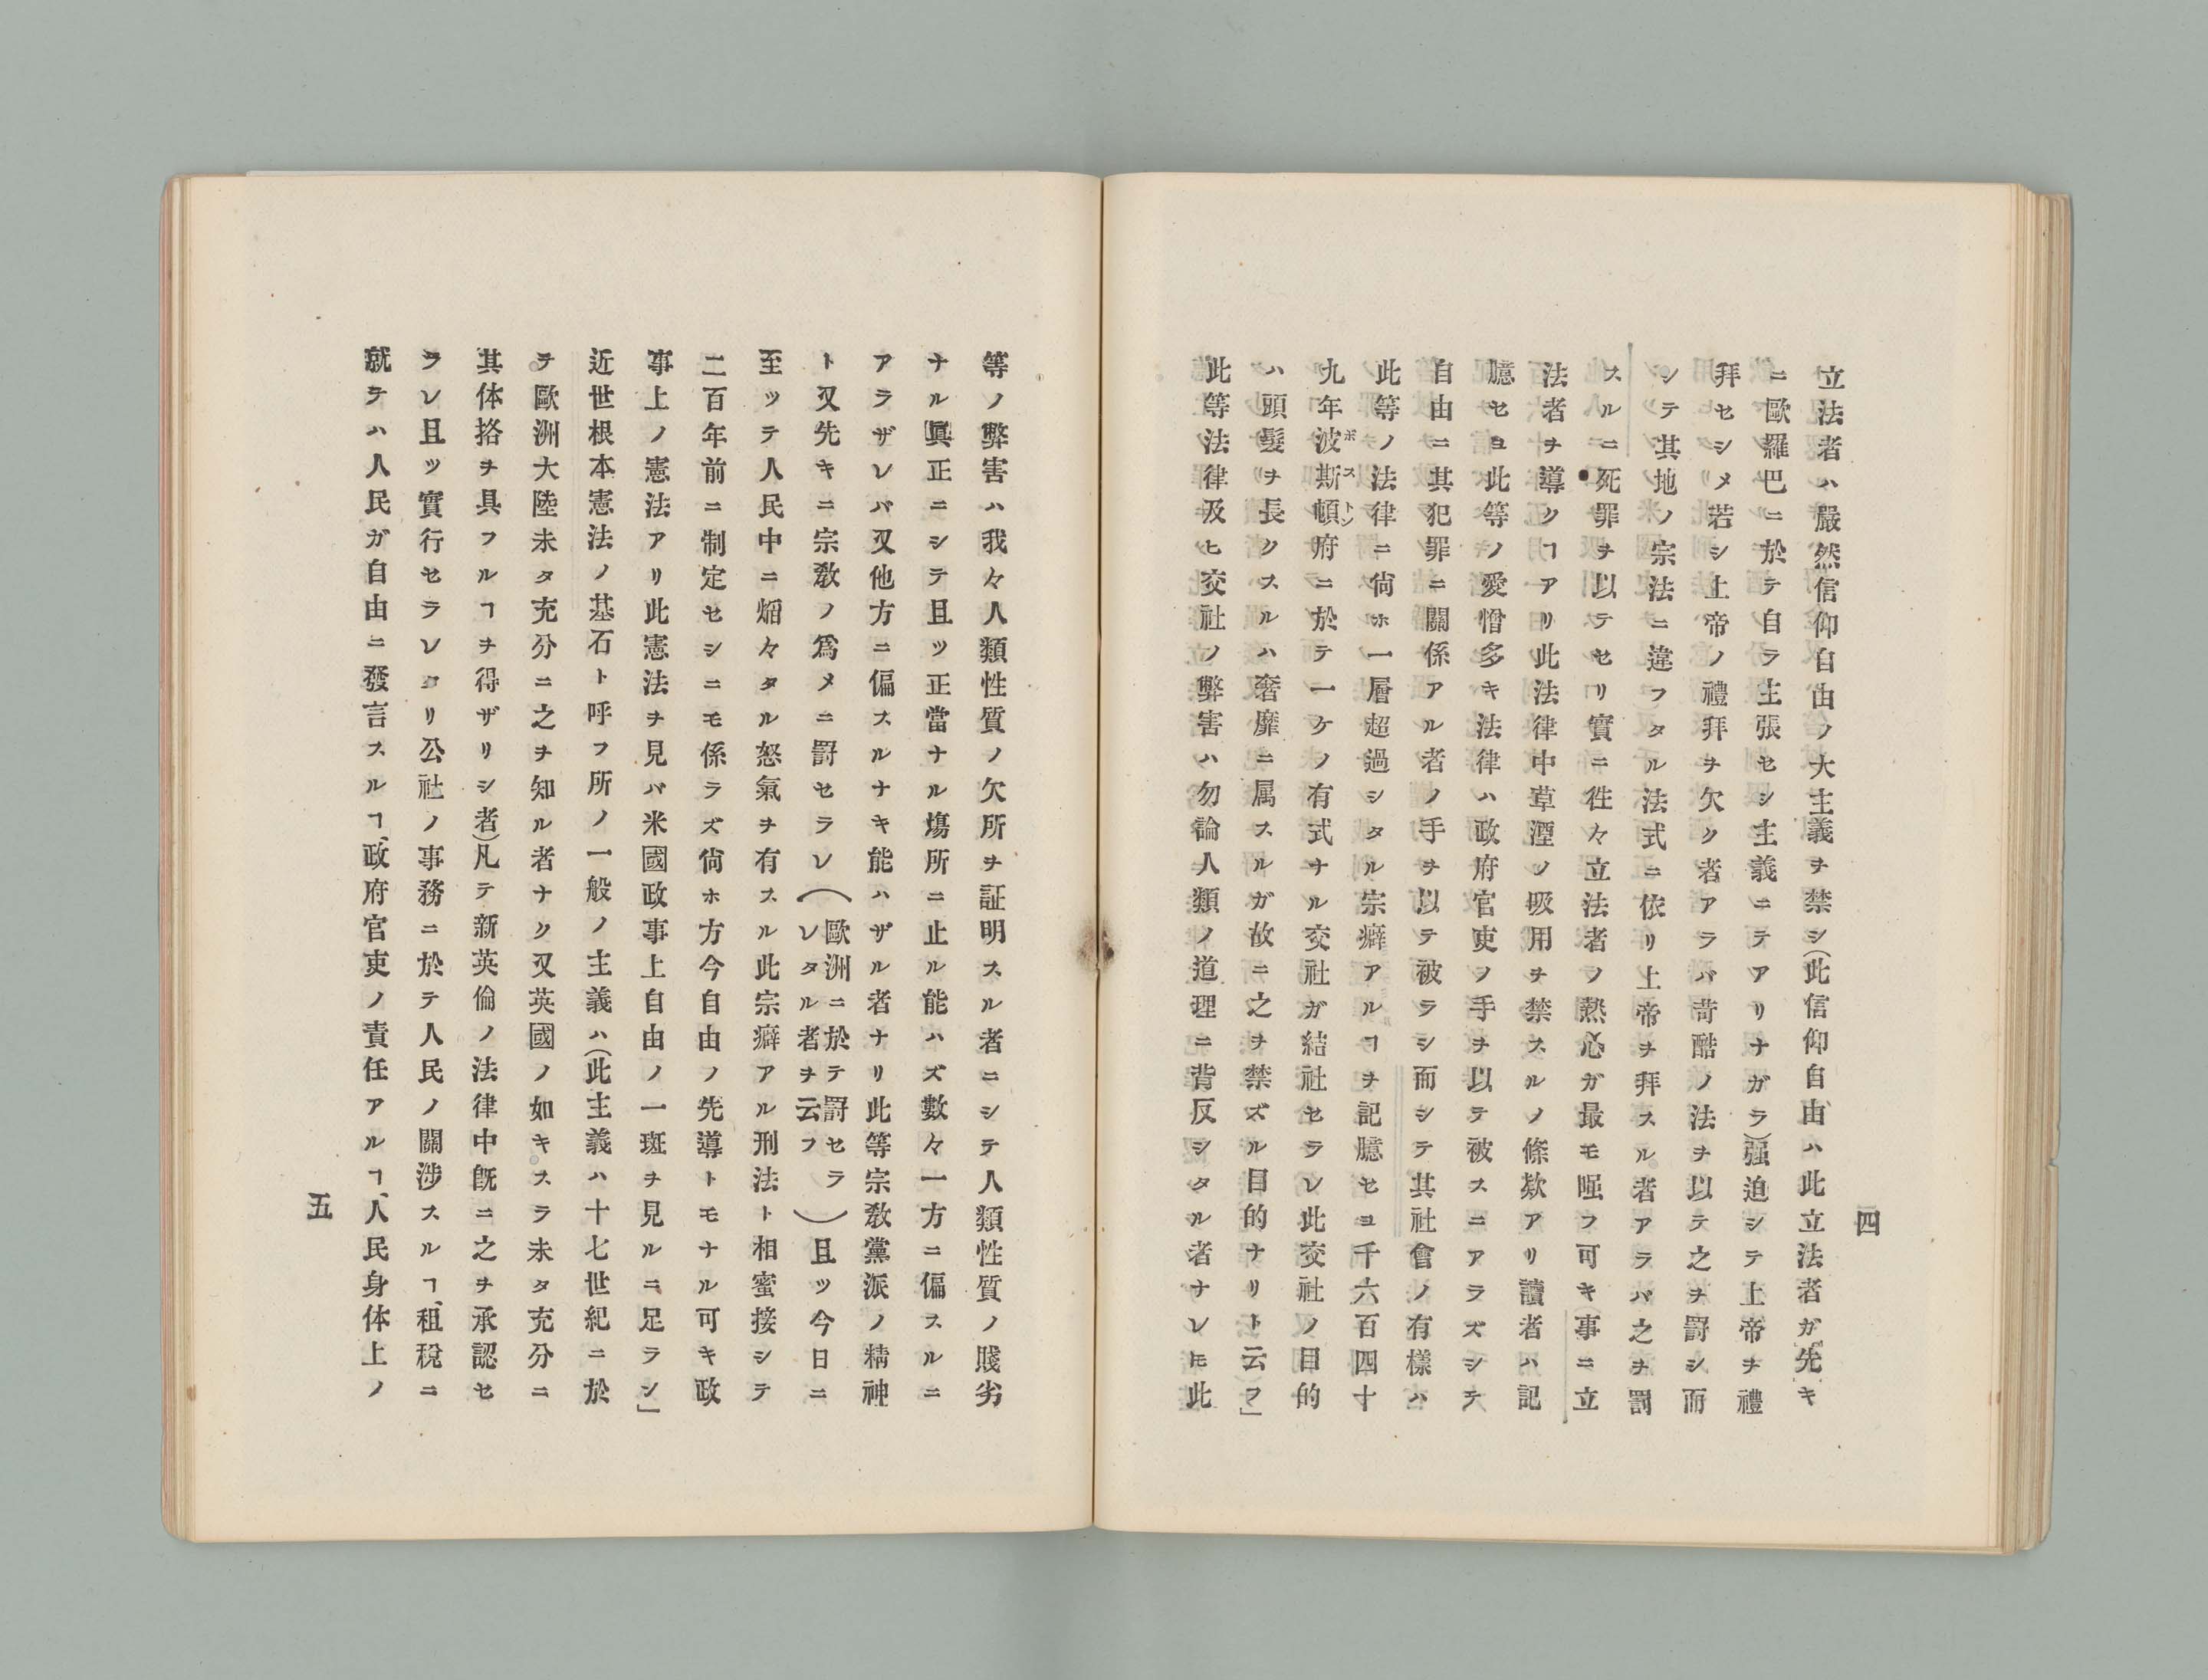 四
立法者ハ嚴然信仰自由ノ大主義ヲ禁シ(此信仰自由ハ此立法者ガ先キ
ニ歐羅巴ニ於テ自ラ主張セシ主義ニテアリナガラ)强迫シテ上帝ヲ禮
拜セシメ若シ上帝ノ禮拜ヲ欠ク者アラバ苛酷ノ法ヲ以テ之ヲ罸シ而
シテ其地ノ宗法ニ違フタル法式ニ依リ上帝ヲ拜スル者アラバ之ヲ罰
スルニ死罪ヲ以テセリ實ニ徃々立法者ノ熱心ガ最モ嗤フ可キ事ニ立
法者ヲ導クヿアリ此法律中草湮ノ吸用ヲ禁スルノ條欵アリ讀者ハ記
臆セヨ此等ノ愛憎多キ法律ハ政府官吏ノ手ヲ以テ被スニアラズシテ
自由ニ其犯罪ニ關係アル者ノ手ヲ以テ被ラシ而シテ其社會ノ有樣ハ
此等ノ法律ニ尙ホ一層超過シタル宗癖アルヿヲ記臆セヨ千六百四十
九年波斯頓府ニ於テ一ケノ有式ナル交社ガ結社セラレ此交社ノ目的
ボストン
ハ頭髮ヲ長クスルハ奢靡ニ属スルガ故ニ之ヲ禁ズル目的ナリト云フ」
此等法律及ヒ交社ノ弊害ハ勿論人類ノ道理ニ背反シタル者ナレ𪜈此
等ノ弊害ハ我々人類性質ノ欠所ヲ証明スル者ニシテ人類性質ノ賤劣
ナル眞正ニシテ且ツ正當ナル塲所ニ止ル能ハズ數々一方ニ偏スルニ
アラザレバ又他方ニ偏スルナキ能ハザル者ナリ此等宗敎黨派ノ精神
ト又先キニ宗敎ノ爲メニ罸セラレ(歐洲ニ於テ罸セラレタル者ヲ云フ)且ツ今日ニ
至ッテ人民中ニ焰々タル怒氣ヲ有スル此宗癖アル刑法ト相蜜接シテ
二百年前ニ制定セシニモ係ラズ尙ホ方今自由ノ先導トモナル可キ政
事上ノ憲法アリ此憲法ヲ見バ米國政事上自由ノ一斑ヲ見ルニ足ラン」
近世根本憲法ノ基石ト呼フ所ノ一般ノ主義ハ(此主義ハ十七世紀ニ於
テ歐洲大陸未タ充分ニ之ヲ知ル者ナク又英國ノ如キスラ未タ充分ニ
其体挌ヲ具フルヿヲ得ザリシ者)凡テ新英倫ノ法律中旣ニ之ヲ承認セ
ラレ且ツ實行セラレタリ公社ノ事務ニ於テ人民ノ關涉スルヿ、租稅ニ
就テハ人民ガ自由ニ發言スルヿ、政府官吏ノ責任アルヿ、人民身体上ノ
五